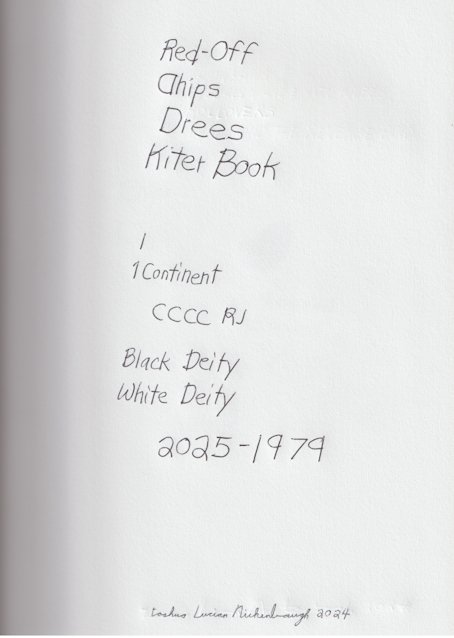 Red-Off
Chips
Drees
Kiter Book
1
1 Continent
CCCC RJ
Black Deity
White Deity
2025-1979
Lucian 2024